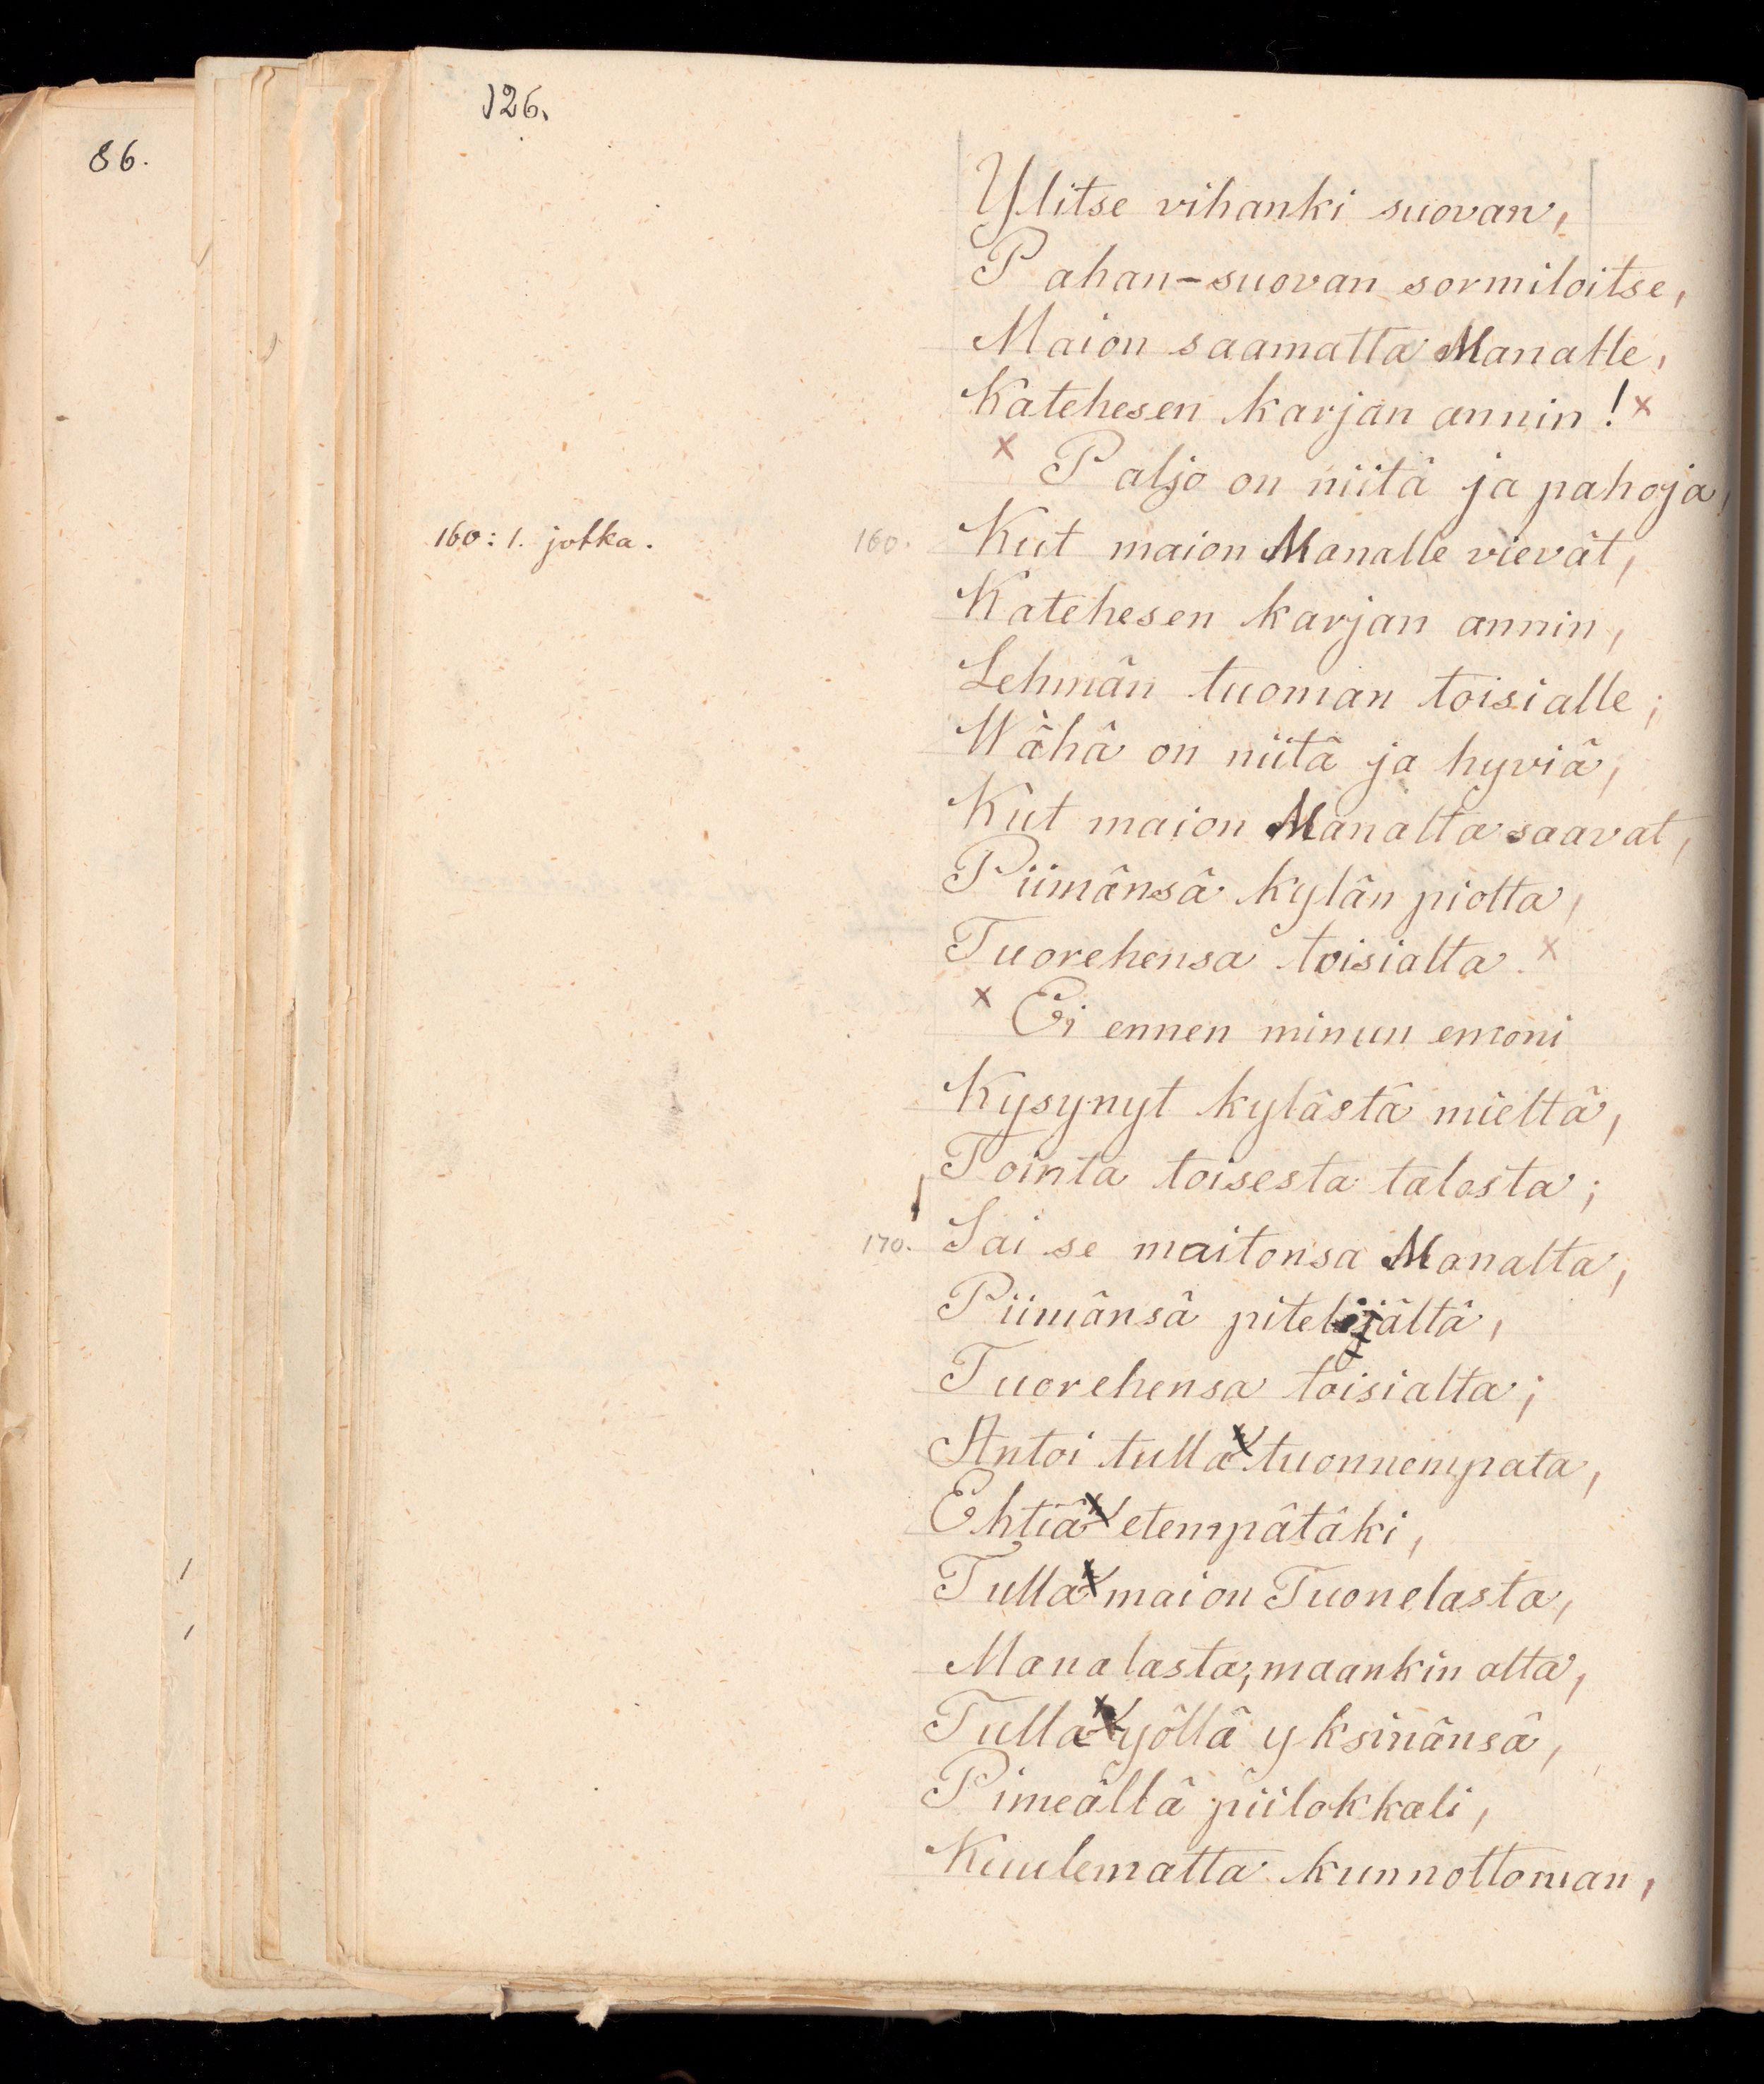 126.
86.
Ylitse vihanki suovan,
Pahan-suovan sormiloitse,
Maion saamatta Manalle,
Katehesen karjan annin! x
x Paljo on niitä ja pahoja,
160: 1. jotka.
160. Kut maion Manalle vievät,
Katehesen karjan annin,
Lehmän tuoman toisialle;
Wähä on niitä ja hyviä,
Kut maion Manalta saavat,
Piimänsä kylän piolta,
Tuorehensa toisialta. x
x Ei ennen minun emoni
Kysynyt kylästä mieltä,
Tointa toisesta talosta;
170. Sai se maitonsa Manalta,
Piimänsä pitelijältä,
Tuorehensa toisialta;
Antoi tulla tuonnempata,
Ehtiä etempätäki,
Tulla maion Tuonelasta,
Manalasta, maankin alta,
Tulla yöllä yksinänsä,
Pimeällä piilokkali,
Kuulematta kunnottoman,